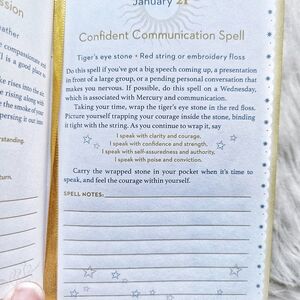 ssion
eather
compassionate and
ll is a good place to
ke rises into the air
e rising along with
the smoke of your
persing it out into
rstanding.
turn.
January 21
Confident Communication Spell
Tiger's eye stone • Red string or embroidery floss
Do this spell if you've got a big speech coming up, a presentation
in front of a large group, or a pending personal conversation that
makes you nervous. If possible, do this spell on a Wednesday,
which is associated with Mercury and communication.
Taking your time, wrap the tiger's eye stone in the red floss.
Picture yourself trapping your courage inside the stone, binding
it tight with the string. As you continue to wrap it, say
I speak with clarity and courage.
I speak with confidence and strength.
I speak with self-assuredness and authority.
I speak with poise and conviction.
Carry the wrapped stone in your pocket when it's time to
speak, and feel the courage within yourself.
SPELL NOTES: